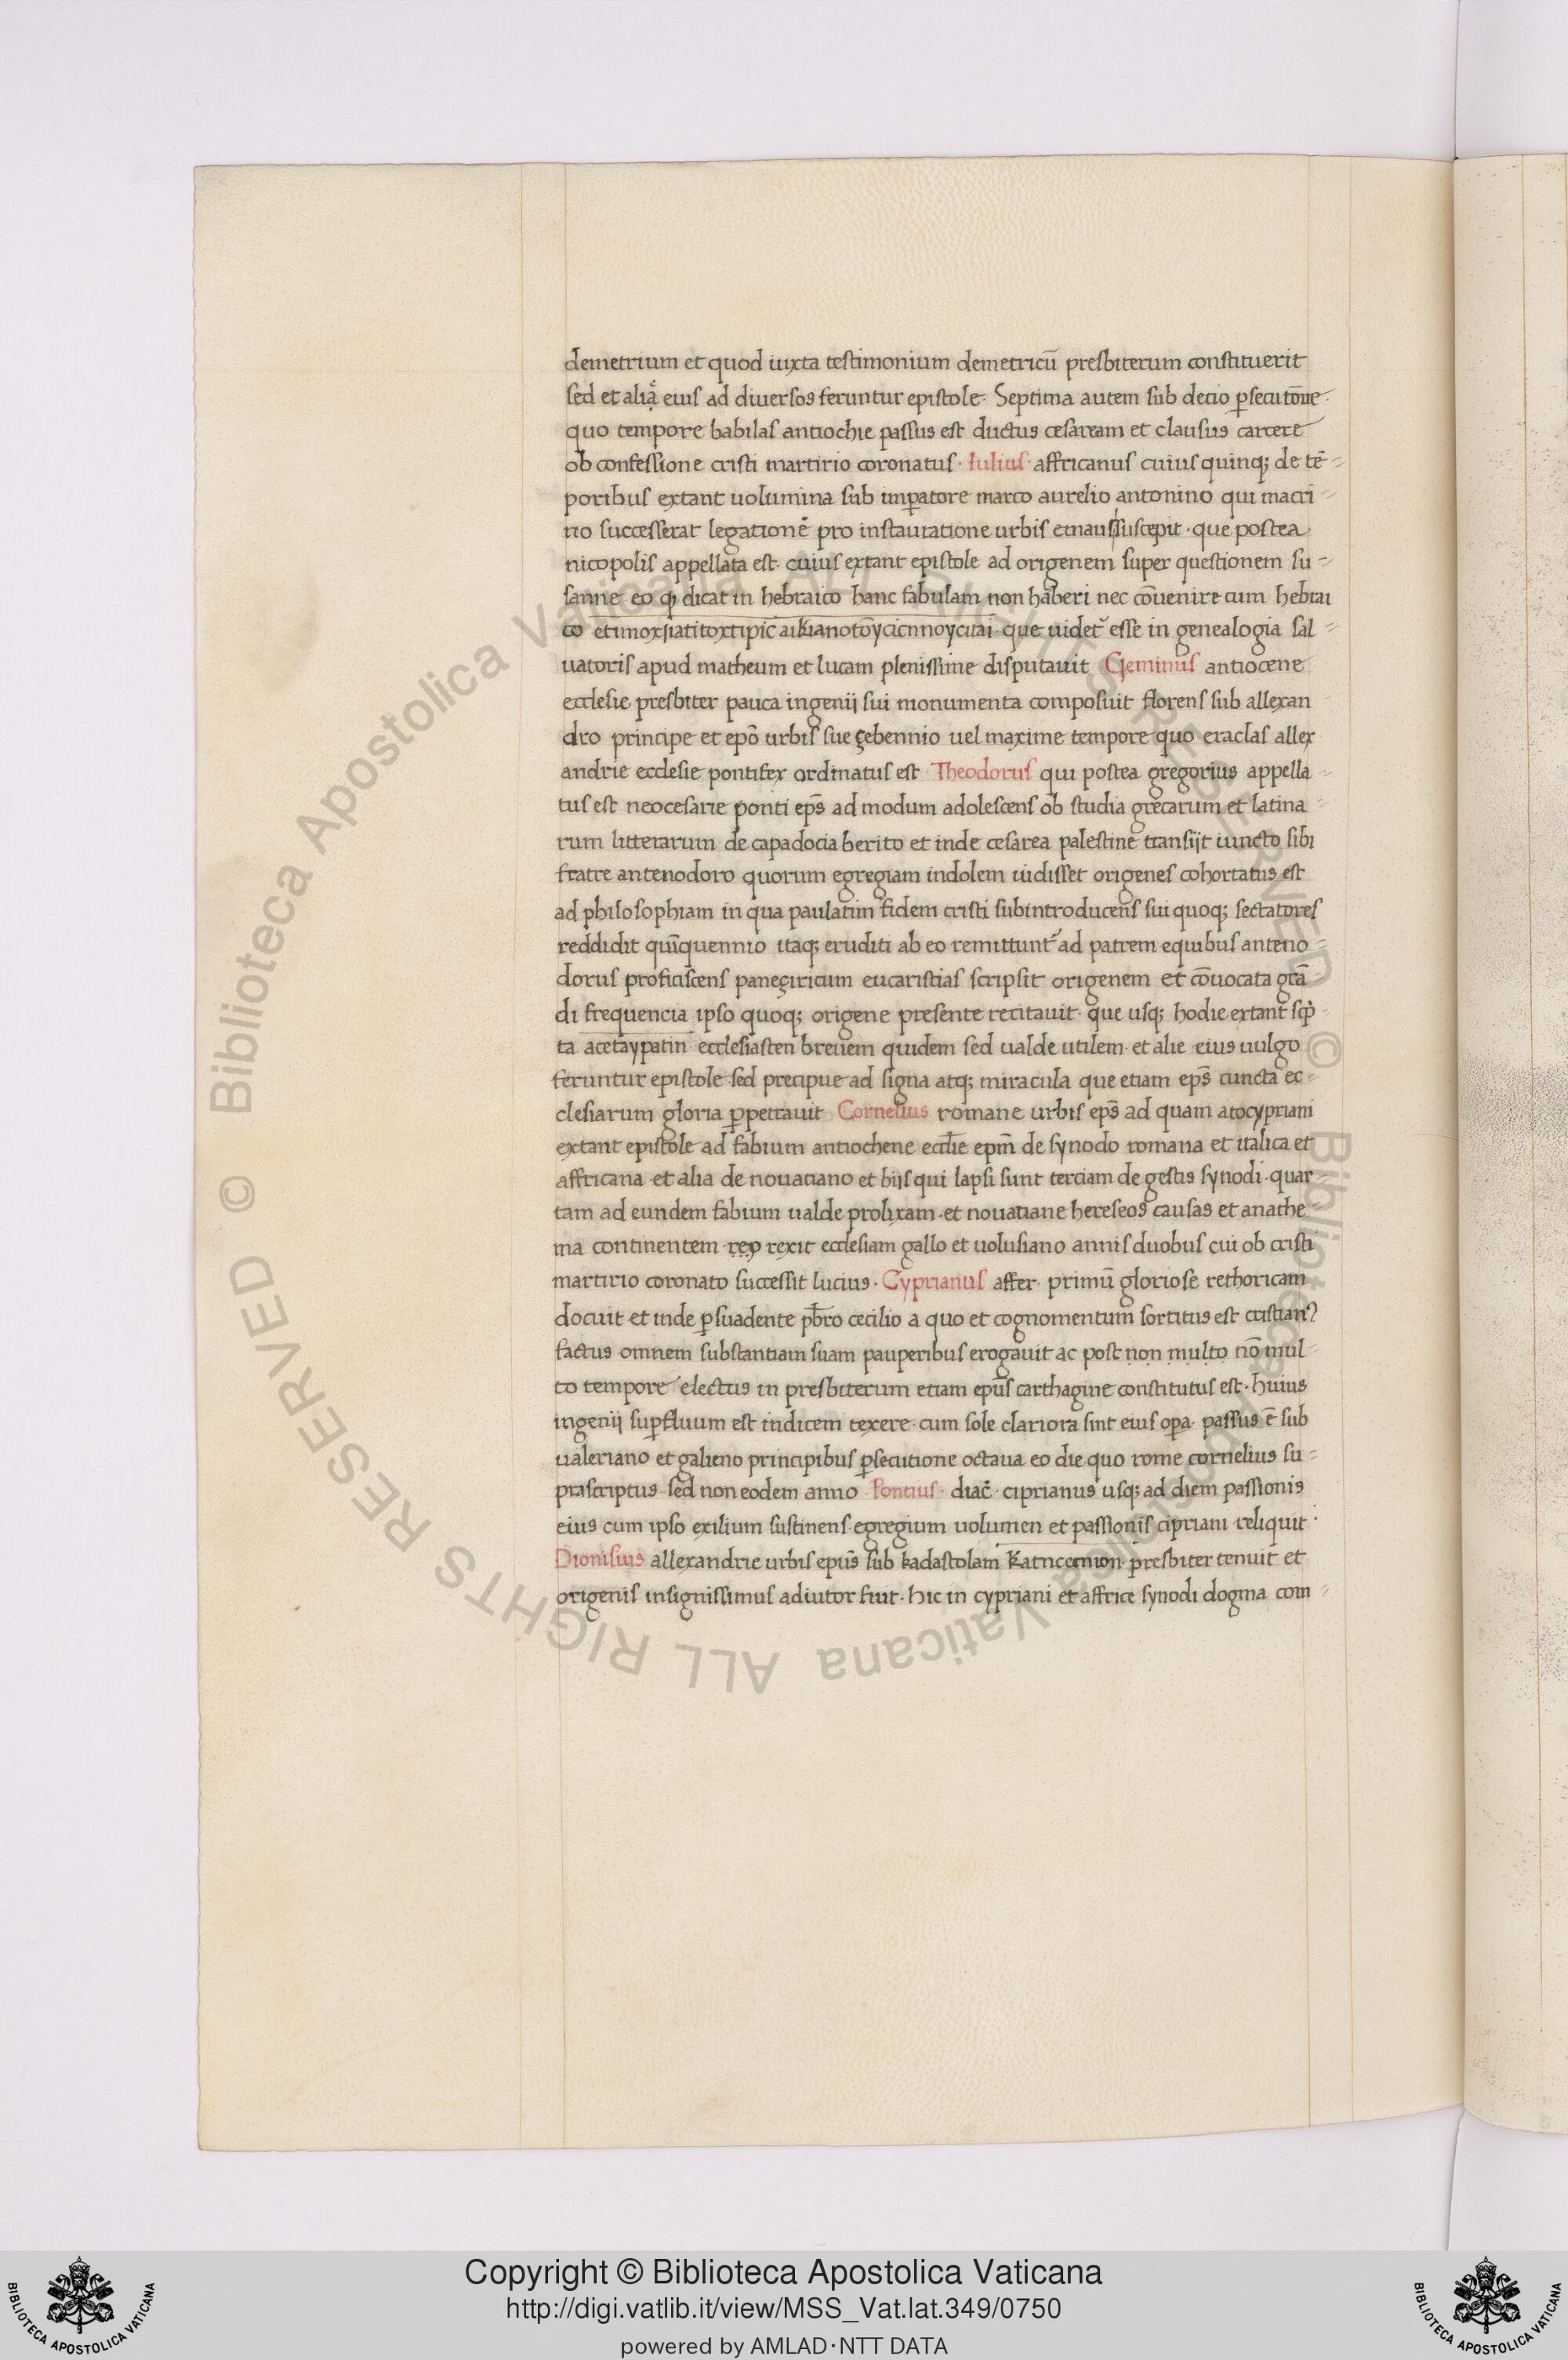 demetrium et quod iuxta testimonium demetricū presbiterum constituerit
sed et alią eius ad diuersos feruntur epistole· Septima autem sub decio ꝑsecutōne·
quo tempore babilas antiochie passus est ductus cesaream et clausus carcere
ob confessione cristi martirio coronatus· Iulius· affricanus cuius quinqꝫ de tē=
poribus extant uolumina sub imꝑatore marco aurelio antonino qui macri=
no successerat legationē pro instauratione urbis emaus suscepit· que postea
nicopolis appellata est· cuius extant epistole ad origenem super questionem su=
sanne eo ꝙ dicat in hebraico hanc fabulam non haberi nec cōuenire cum hebrai
co que uidet᷑ esse in genealogia sal=
uatoris apud matheum et lucam plenissime disputauit Geminus antiocene
ecclesie presbiter pauca ingenij sui monumenta composuit florens sub allexan=
dro principe et epō urbis sue çebennio uel maxime tempore quo eraclas allex
andrie ecclesie pontifex ordinatus est Theodorus qui postea gregorius appella=
tus est neocesarie ponti ep̄s ad modum adolescens ob studia grecarum et latina=
rum litterarum de capadocia berito et inde cesarea palestine transijt iuncto sibi
fratre antenodoro quorum egregiam indolem uidisset origenes cohortatus est
ad philosophiam in qua paulatim fidem cristi subintroducens sui quoqꝫ sectatores
reddidit quīquennio itaqꝫ eruditi ab eo remittunt᷑ ad patrem equibus anteno=
dorus proficiscens paneçiricum eucaristias scripsit origenem et cōuocata grā=
di frequencia ipso quoqꝫ origene presente recitauit· que usqꝫ hodie extant scp̄=
ta acetaypatin ecclesiasten breuem quidem sed ualde utilem· et alie eius uulgo
feruntur epistole sed precipue ad signa atqꝫ miracula que etiam ep̄s cuncta ec=
clesiarum gloria ꝑpetrauit Cornelius romane urbis ep̄s ad quam atocypriani
extant epistole ad fabium antiochene eccl̄ie ep̄m de synodo romana et italica et
affricana et alia de nouatiano et hijs qui lapsi sunt terciam de gestis synodi· quar=
tam ad eundem fabium ualde prolixam· et nouatiane hereseos causas et anathe=
ma continentem rep rexit ecclesiam gallo et uolusiano annis duobus cui ob cristi
martirio coronato successit lucius· Cyprianus affer· primū gloriose rethoricam
docuit et inde ꝑsuadente pb̄ro cecilio a quo et cognomentum sortitus est cristianꝰ
factus omnem substantiam suam pauperibus erogauit ac post non multo nō mul=
to tempore electus in presbiterum etiam epūs carthagine constitutus est· huius
ingenij suꝑfluum est indicem texere· cum sole clariora sint eius oꝑa· passus ē sub
ualeriano et galieno principibus ꝑsecutione octaua eo die quo rome cornelius su=
prascriptus sed non eodem anno Pontius· diac̄· ciprianus usqꝫ ad diem passionis
eius cum ipso exilium sustinens· egregium uolumen et passionis cipriani reliquit·
Dionisius allexandrie urbis epūs sub kadastolam presbiter tenuit et
origenis insignissimus adiutor fuit· hic in cypriani et affrice synodi dogma com=
© Biblioteca Apostolica Vaticana ALL RIGHTS RESERVED © Biblioteca Apostolica Vaticana ALL RIGHTS RESERVED
Copyright © Biblioteca Apostolica Vaticana
http://digi.vatlib.it/view/MSS_Vat.lat.349/0750
powered by AMLAD·NTT DATA
BIBLIOTECA APOSTOLICA VATICANA
BIBLIOTECA APOSTOLICA VATICANA